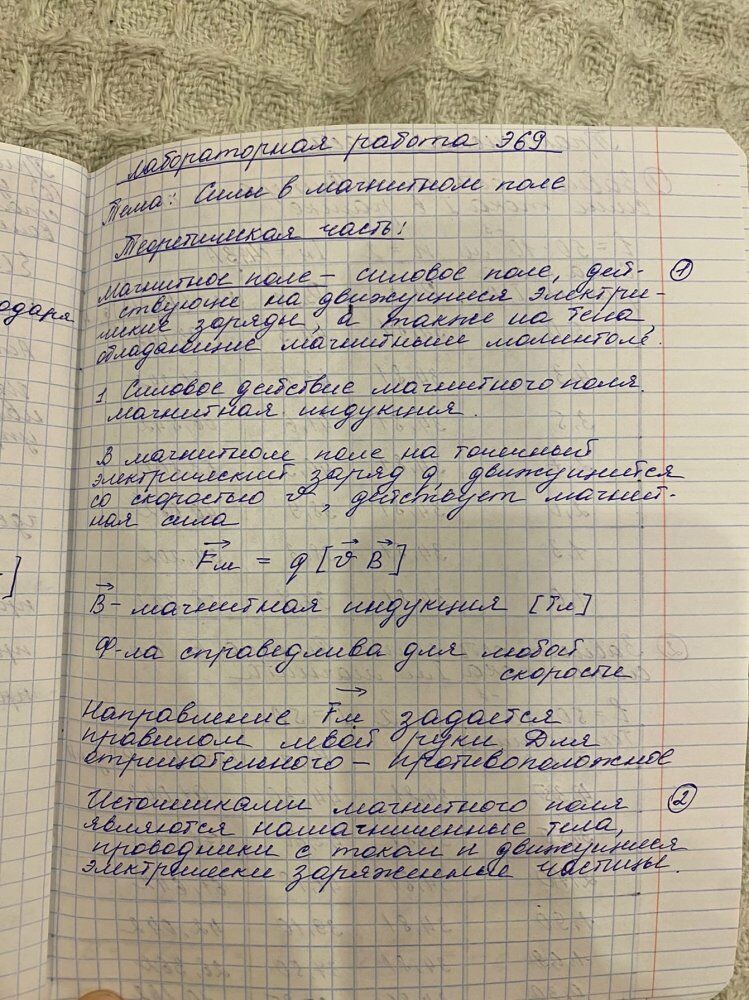 одаря
]
Лабораторная работа Э69
Тема: Силы в магнитном поле
Теоретическая часть:
Магнитное поле – силовое поле, дей- ①
ствующие на движущиеся электри-
ческие заряды, а также на тела,
обладающие магнитным моментом.
1. Силовое действие магнитного поля.
магнитная индукция.
В магнитном поле на точечный
электрический заряд q, движущийся
со скоростью v⃗, действует магнит-
ная сила
F⃗м = q [v⃗ B⃗]
B⃗ - магнитная индукция [Тл]
Ф-ла справедлива для любой
скорости
Направление F⃗м задаётся
правилом левой руки Для
отрицательного – противоположное
Источниками магнитного поля ②
являются намагниченные тела,
проводники с током и движущиеся
электрически заряженные частицы.